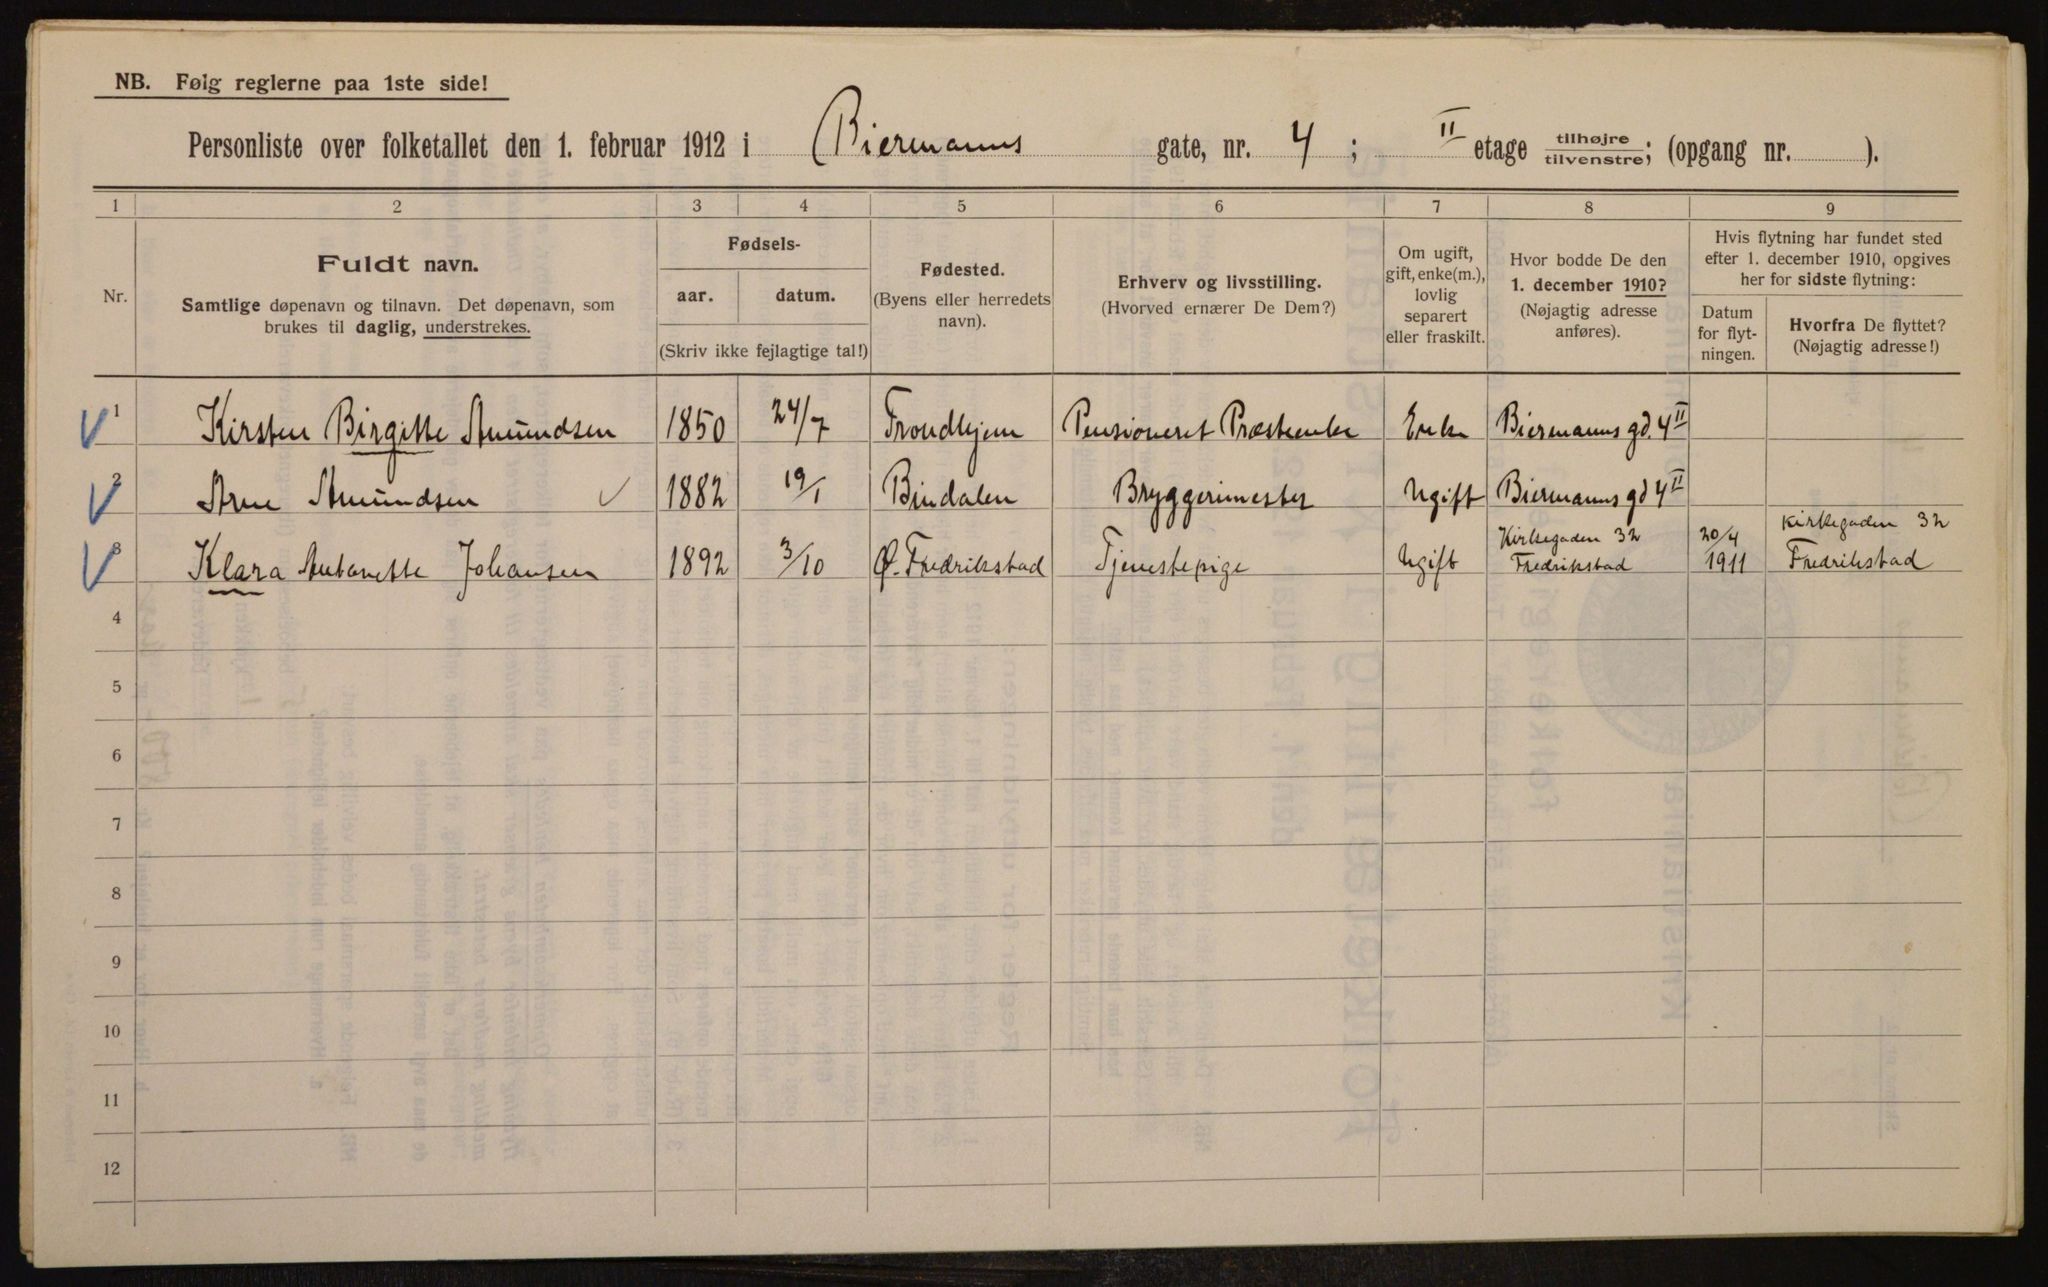 NB. Følg reglerne paa 1ste side!
Personliste over folketallet den 1. februar 1912 i Biermanns gate, nr. 4; II etage tilhøjre/tilvenstre; (opgang nr. ).
1 2 3 4 5 6 7 8 9
Nr.
Fuldt navn.
Samtlige døpenavn og tilnavn. Det døpenavn, som
brukes til daglig, understrekes.
Fødsels-
aar. datum.
(Skriv ikke fejlagtige tal!)
Fødested.
(Byens eller herredets
navn).
Erhverv og livsstilling.
(Hvorved ernærer De Dem?)
Om ugift,
gift, enke(m.),
lovlig
separert
eller fraskilt.
Hvor bodde De den
1. december 1910?
(Nøjagtig adresse
anføres).
Hvis flytning har fundet sted
efter 1. december 1910, opgives
her for sidste flytning:
Datum
for flyt-
ningen.
Hvorfra De flyttet?
(Nøjagtig adresse!)
1 Kirsten Birgitte Amundsen 1850 24/7 Trondhjem Pensioneret Præsteenke Enke Biermanns gd. 4 II
2 Arne Amundsen 1882 19/1 Bindalen Bryggerimester Ugift Biermanns gd 4 II
3 Klara Antonette Johansen 1892 3/10 Ø. Fredrikstad Tjenestepige Ugift Kirkegaden 32 Fredrikstad 20/4 1911 Kirkegaden 32 Fredrikstad
4
5
6
7
8
9
10
11
12